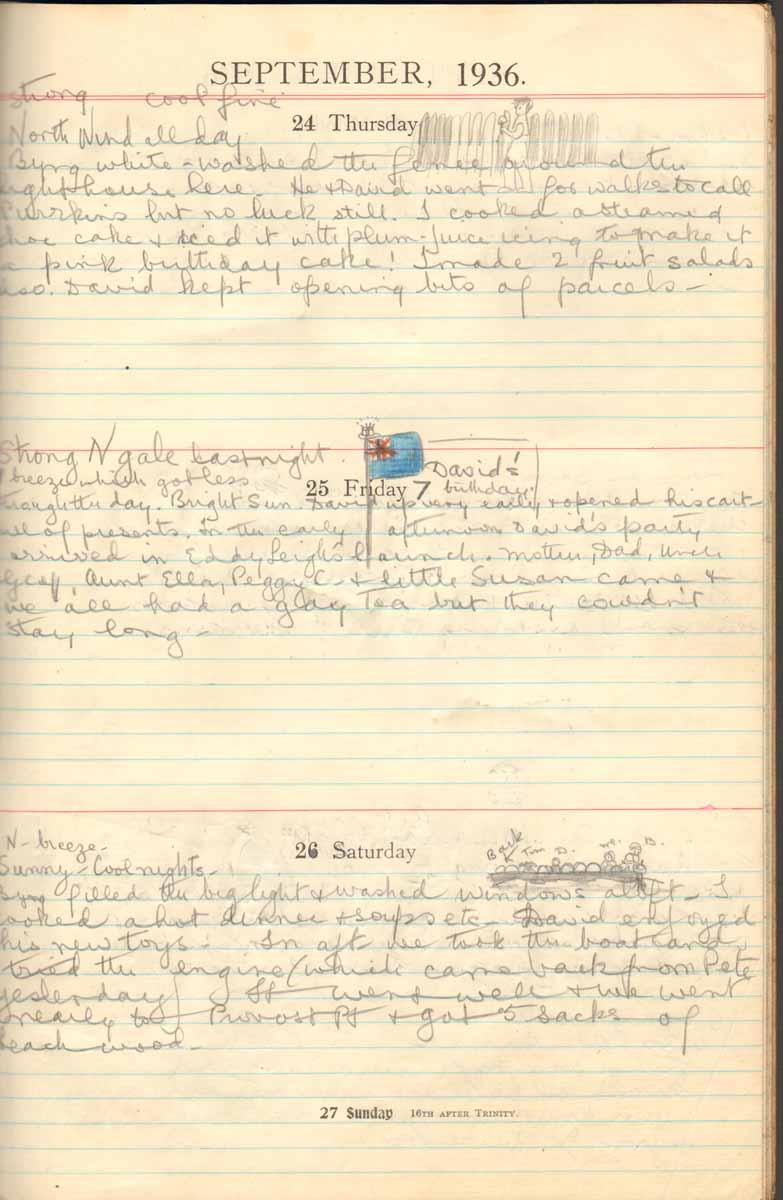 SEPTEMBER, 1936.
strong cool fine
North Wind all day
24 Thursday
Byng white-washed the fence around the
lighthouse here. He & David went for walks to call
Purrkins but no luck still. I cooked a steamed
choc cake & iced it with plum-juice icing to make it
a pink birthday cake! I made 2 fruit salads
also. David kept opening bits of parcels -
Strong N gale last night.
breeze which got less
25 Friday David's
7 birthday.
through the day. Bright Sun. David up very early & opened his cart-
of presents. In the early afternoon David's party
arrived in Eddy Leigh's launch. Mother, Dad, Uncle
Geoff, Aunt Ella, Peggy C- & little Susan came &
we all had a gay Tea but they couldn't
stay long -
N- breeze-
Sunny - Cool nights -
26 Saturday
Back me. B.
D.
Byng filled the big light & washed windows aloft - I
cooked a hot dinner & soups etc - David enjoyed
his new toys - In aft we took the boat and
tried the engine (which came back from Pete
yesterday) It went well & we went
nearly to Provost Pt & got 5 sacks of
beach wood -
27 Sunday 16TH AFTER TRINITY.